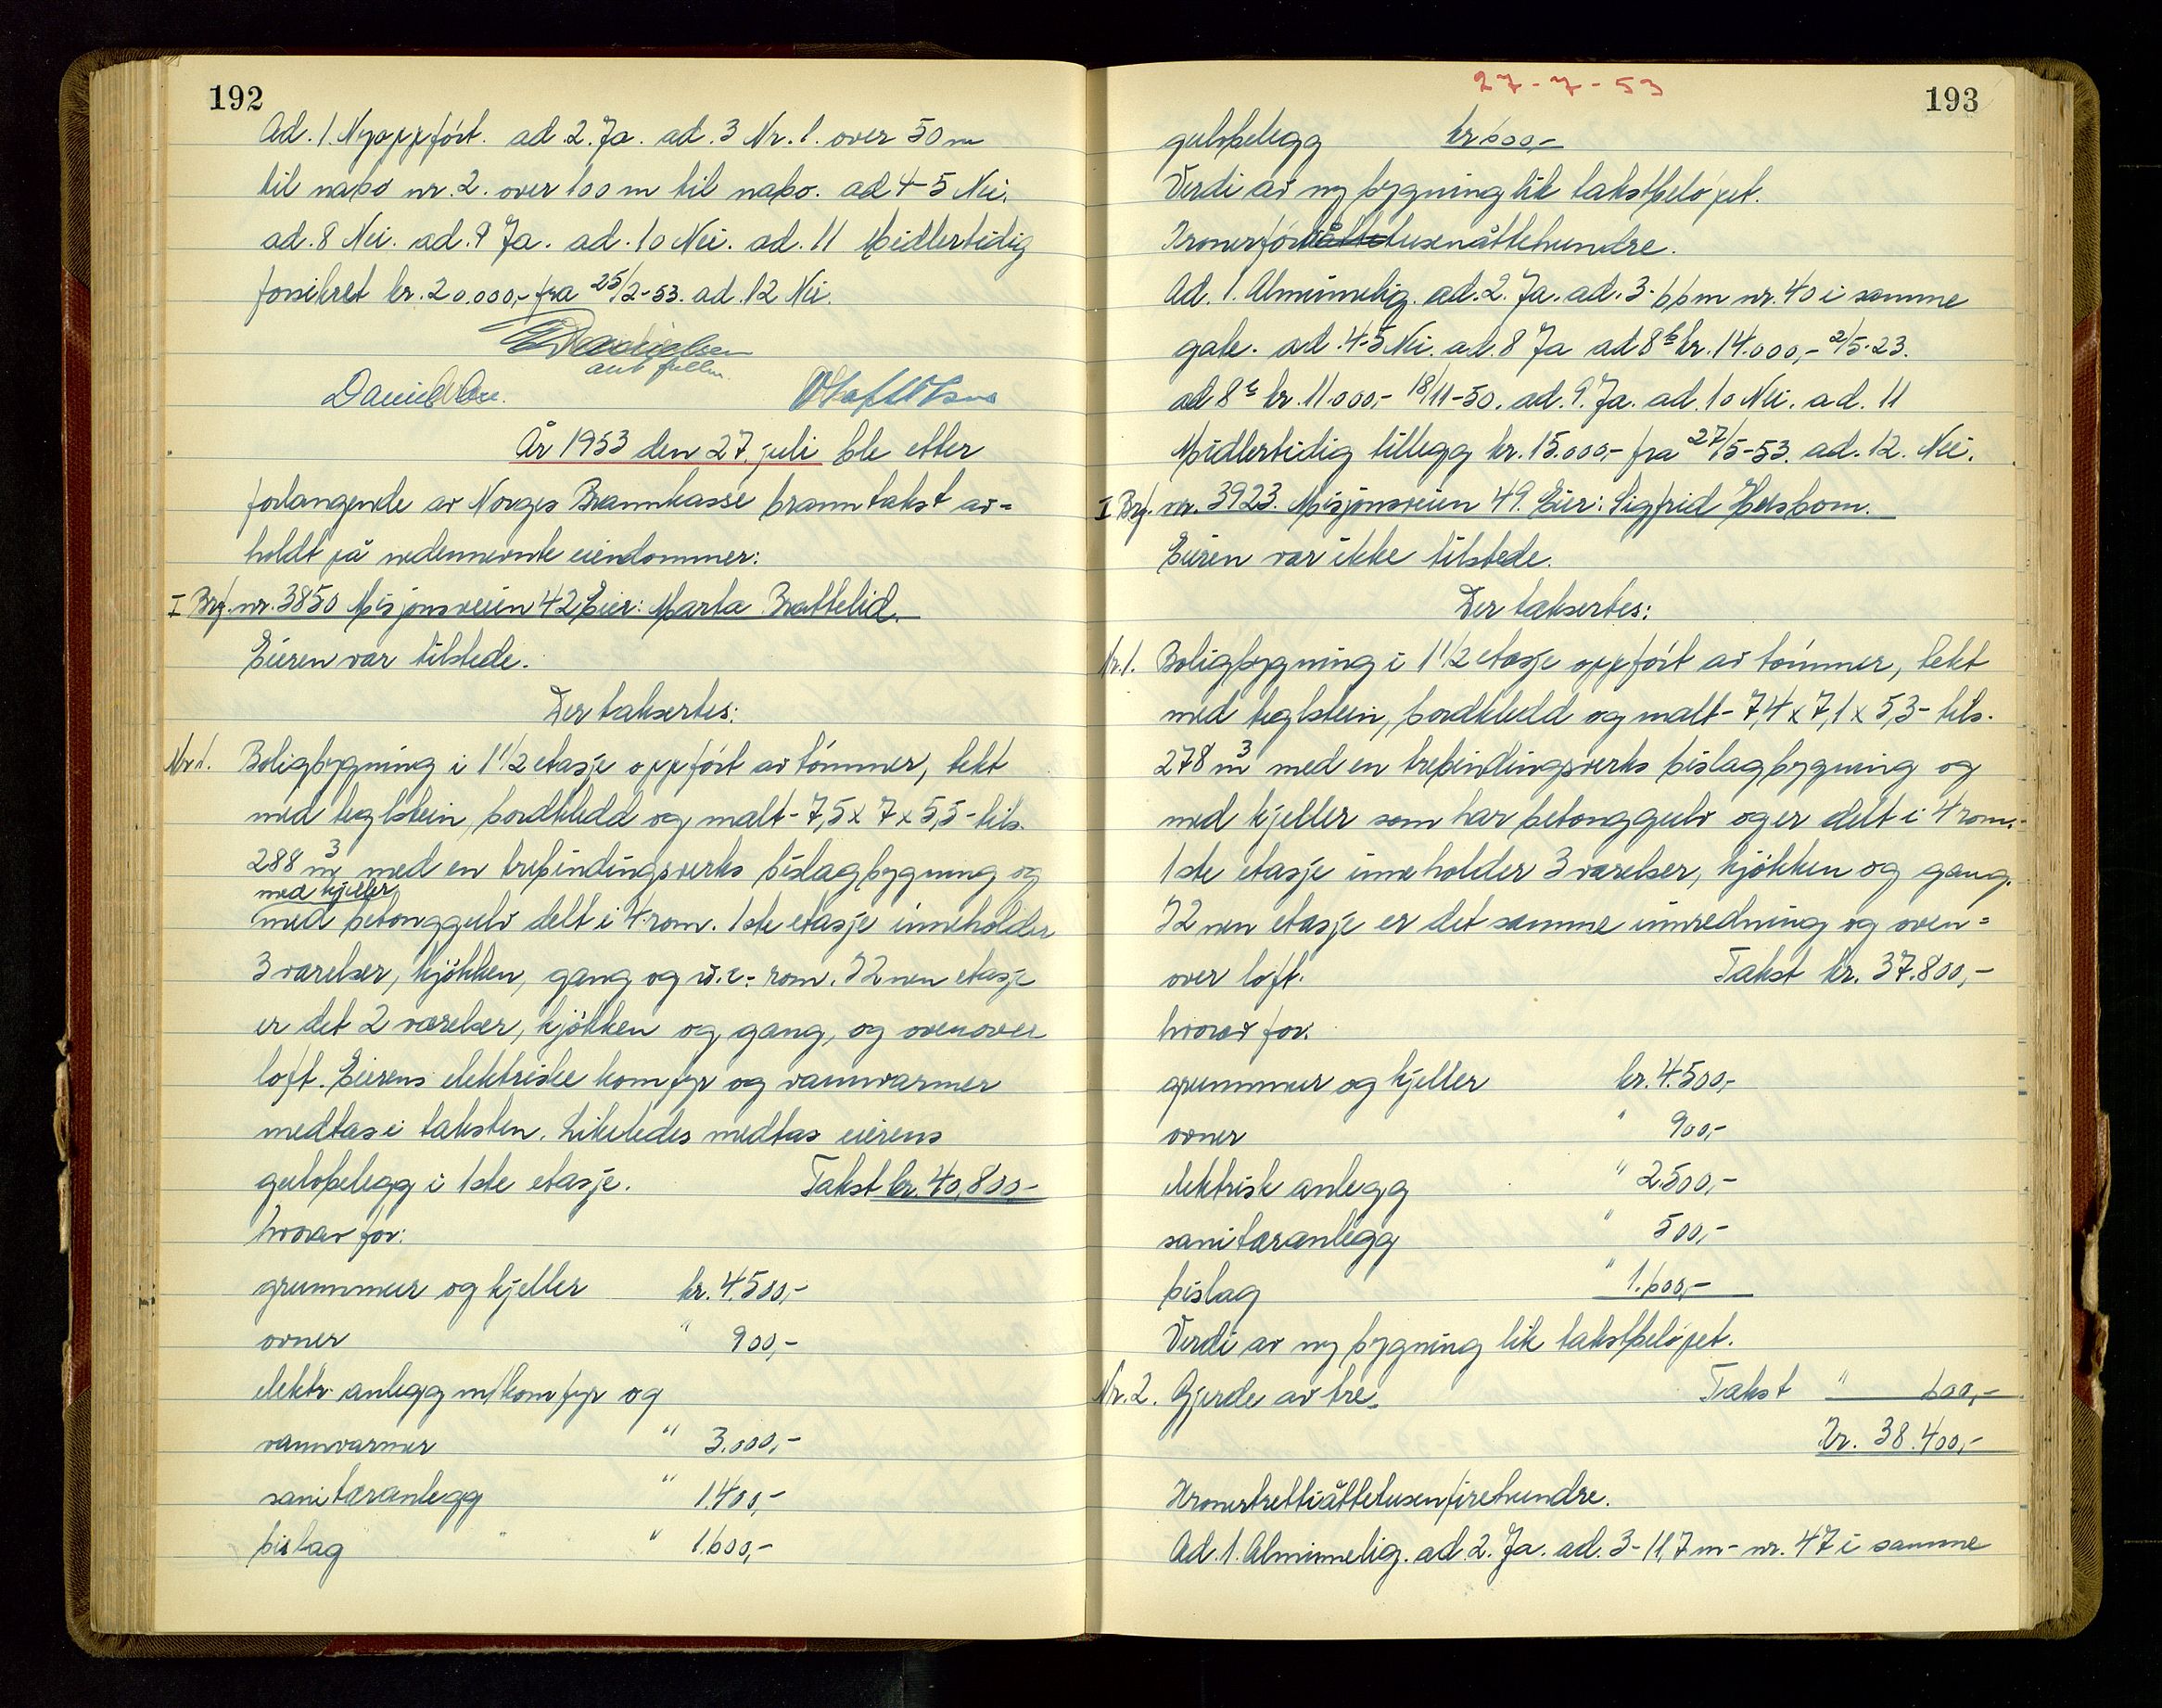 192
Ad. 1. Nyoppført. ad. 2. Ja. ad. 3 Nr. 1. over 50 m
til nabo nr. 2. over 100 m til nabo. ad 4-5 Nei.
ad. 8 Nei. ad. 9 Ja. ad. 10 Nei. ad. 11 Midlertidig
forsikret kr. 20.000,- fra 25/2-53. ad. 12 Nei.
År 1953 den 27. juli ble etter
forlangende av Norges Brannkasse branntakst av=
holdt på nedennevnte eiendommer:
I Brf. nr. 3850 Misjonsveien 42 Eier: Marta Brattelid.
Eieren var tilstede.
Der taksertes:
Nr. 1. Boligbygning i 1 1/2 etasje oppført av tømmer, tekt
med teglstein, bordkledd og malt - 7,5 x 7 x 5,5 - tils.
288 m3 med en trebindingsverks bislagbygning og
med kjeller
med betonggulv delt i 4 rom. 1ste etasje inneholder
3 værelser, kjøkken, gang og w.c.-rom. I 2nen etasje
er det 2 værelser, kjøkken og gang, og ovenover
loft. Eierens elektriske komfyr og vannvarmer
medtas i taksten. Likeledes medtas eierens
gulvbelegg i 1ste etasje. Takst kr. 40,800-
hvorav for:
grunnmur og kjeller kr. 4.500,-
ovner " 900,-
elektr. anlegg m/komfyr og
vannvarmer " 3.000,-
sanitæranlegg " 1.400,-
bislag " " 1.600,-
27-7-53
193
gulvbelegg kr 600,-
Verdi av ny bygning lik takstbeløpet.
Kroner førtitusenåttehundre.
Ad. 1. Alminnelig. ad. 2. Ja. ad. 3 - 66 m nr. 40 i samme
gate. ad. 4-5 Nei. ad. 8 Ja ad 8 b kr. 14.000,- 2/5-23.
ad 8 c kr. 11.000,- 18/11-50. ad. 9. Ja. ad. 10 Nei. ad. 11
Midlertidig tillegg kr. 15.000,- fra 27/5-53. ad. 12. Nei.
I Brf. nr. 3923. Misjonsveien 49. Eier: Sigfrid
Eieren var ikke tilstede.
Der taksertes:
Nr. 1. Boligbygning i 1 1/2 etasje oppført av tømmer, tekt
med teglstein, bordkledd og malt - 7,4 x 7,1 x 5,3 - tils.
278 m3 med en trebindingsverks bislagbygning og
med kjeller som har betonggulv og er delt i 4 rom.-
1ste etasje inneholder 3 værelser, kjøkken og gang.
I 2nen etasje er det samme innredning og oven=
over loft. Takst kr. 37.800,-
hvorav for:
grunnmur og kjeller kr. 4.500,-
ovner " 900,-
elektrisk anlegg " 2500,-
sanitæranlegg " 500,-
bislag " 1.600,-
Verdi av ny bygning lik takstbeløpet.
Nr. 2. Gjerde av tre. Takst " 600,-
Kr. 38.400,-
Kronertrettiåttetusenfirehundre.
Ad. 1. Alminnelig. ad. 2. Ja. ad. 3 - 11,7 m - nr. 47 i samme